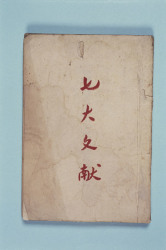 七大文献